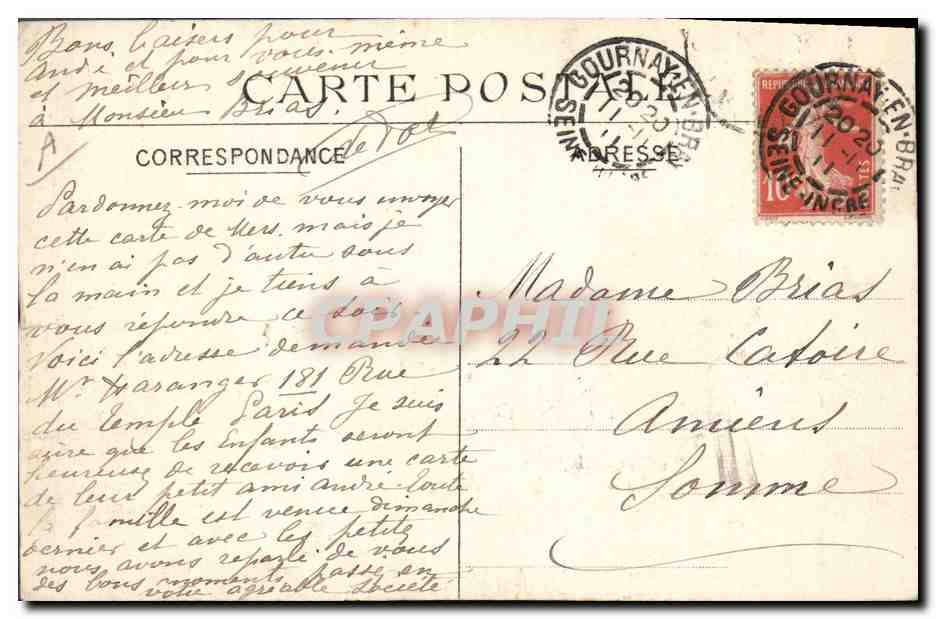 Bons baisers pour
André et pour vous-même
et meilleur souvenir
à Monsieur Brias.
CARTE POSTALE
A
CORRESPONDANCE
ADRESSE
Pardonnez-moi de vous envoyer
cette carte de Mers. mais je
n'en ai pas d'autre sous
la main et je tiens à
vous répondre ce soir
Voici l'adresse demandée
Mr Haranger 181 Rue
du Temple Paris Je suis
que les Enfants seront
heureuse de recevoir une carte
de leur petit ami andré toute
la famille est venue dimanche
dernier et avec les petites
nous avons reparlé de vous
des bons moments passé en
votre agréable société
Madame Brias
22 Rue Catoire
Amiens
Somme
GOURNAY-EN-BRAY
20 20
11-1
11
SEINE
GOURNAY-EN-BRAY
20 20
11-1
11
SEINE-INFRE
10
CPAPHIL